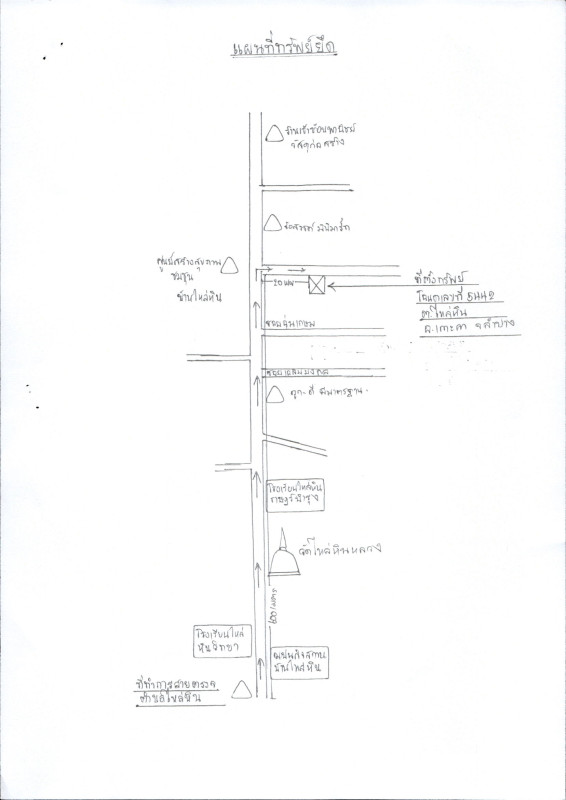 แผนที่ทรัพย์ยึด
วัสดุก่อสร้าง
มินิมาร์ท
ศูนย์สร้างสุขภาพ
ชุมชน
บ้านไหล่หิน
20 เมตร
ที่ตั้งทรัพย์
โฉนดเลขที่ 5442
ต.ไหล่หิน
อ.เกาะคา จ.ลำปาง
ซอยเฉลิมมงคล
ถูก-ดี มีมาตรฐาน
โรงเรียนไหล่หิน
ราษฎร์บำรุง
วัดไหล่หินหลวง
600 เมตร
โรงเรียนไหล่
หินวิทยา
ฌาปนกิจสถาน
บ้านไหล่หิน
ที่ทำการสายตรวจ
ตำบลไหล่หิน